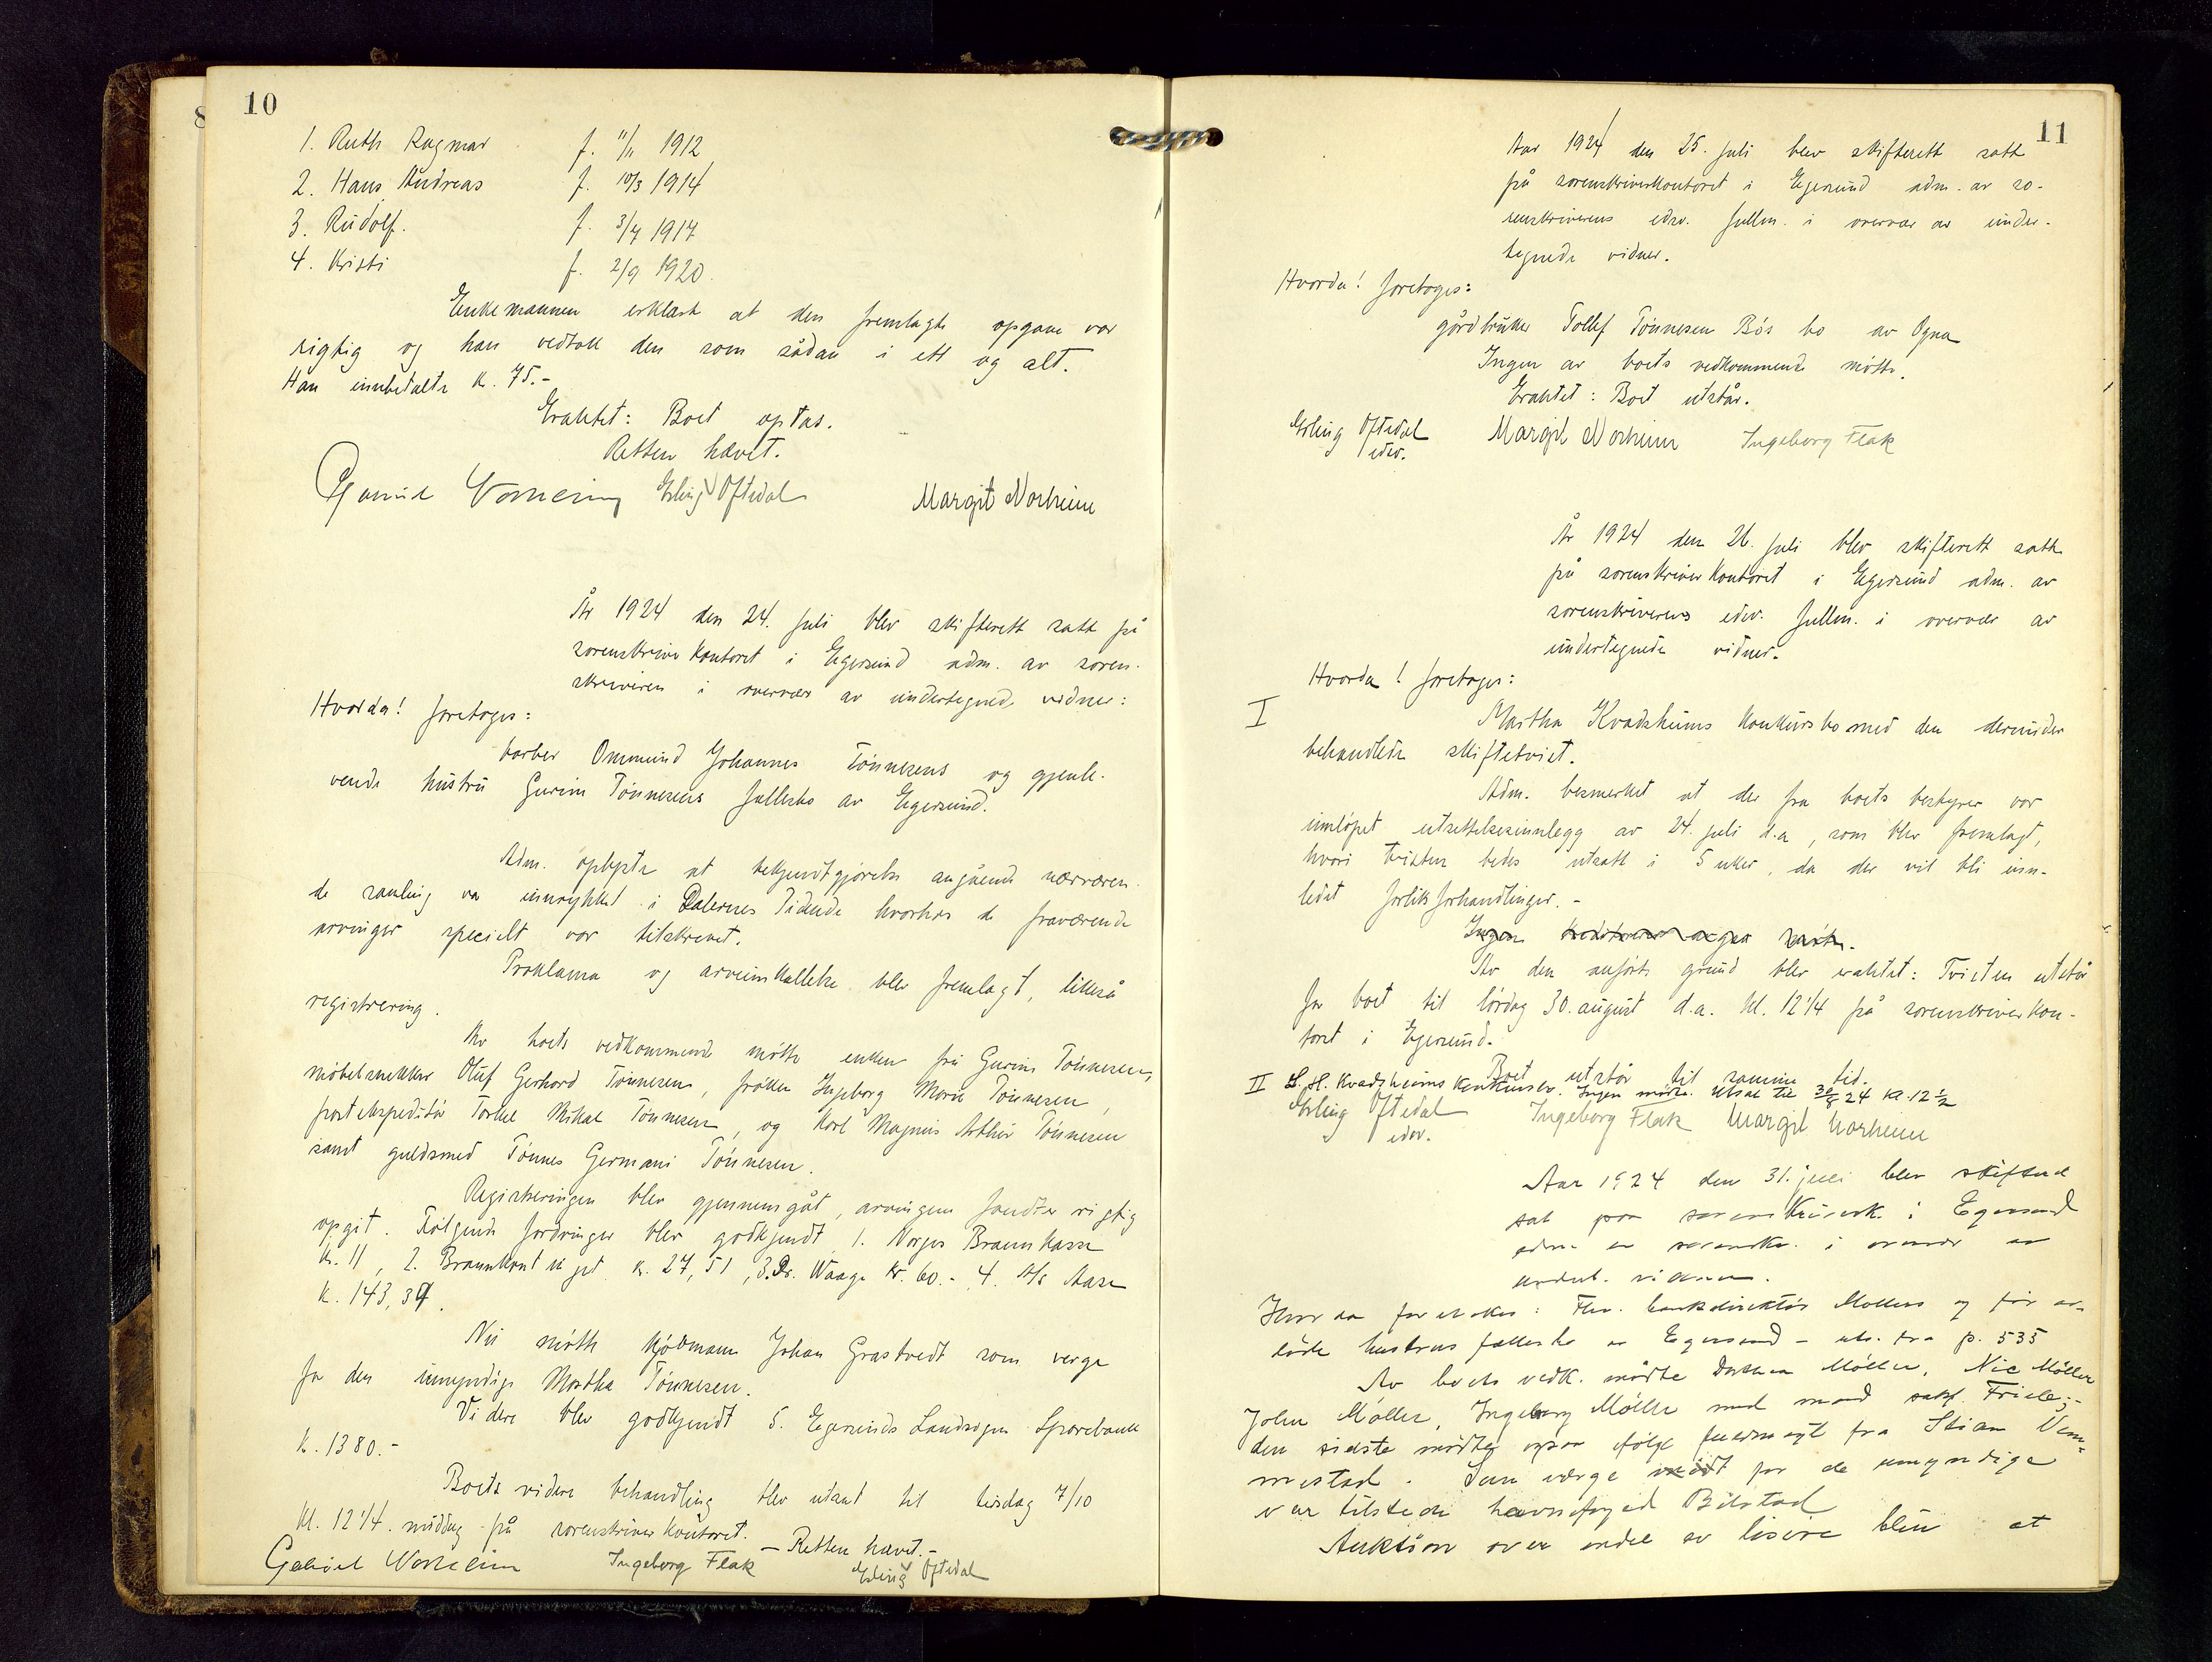 10
1. Ruth Ragmar f. 11/11 1912
2. Hans Andreas f. 10/3 1914
3. Rudolf. f. 3/7 1917
4. Kristi f. 2/9 1920.
Enkemannen erklærte at den fremlagte opgave var
rigtig og han vedtok den som sådan i ett og alt.
Han innbetalte kr. 75.-
Eraktet: Boet optas.
Retten hævet.
Erling Oftedal Margit Norheim
År 1924 den 24. juli blev skifterett satt på
sorenskriverkontoret i Egersund adm. av soren-
skriveren i overvær av undertegnede vidner:
Hvorda! foretoges:
barber Ommund Johannes Tönnesens og gjenle-
vende hustru Gurine Tönnesens fællesbo av Egersund.
Adm. oplyste at bekjendtgjørelse angående nærværen-
de samling var innrykket i Dalernes Tidende hvorhos de fraværende
arvinger specielt var tilskrevet.
Proklama og arveinnkallelse blev fremlagt, likeså
registrering.
Av boets vedkommende møtte enken fru Gurine Tönnesen,
møbelsnekker Oluf Gerhard Tönnesen, frøken Ingeborg Marie Tönnesen,
postekspeditør Torkel Mikal Tönnesen, og Karl Magnus Arthur Tönnesen
samt guldsmed Tönnes Germani Tönnesen.
Registreringen blev gjennemgåt, arvingene fandt den rigtig
opgit. Følgende fordringer blev godkjendt 1. Norges Brannkasse
kr. 11, 2. Brannkont. kr. 27,51, 3. Dr. Waage kr. 60.- 4. A/s Aase
kr. 143,34.
Nu møtte kjøbmann Johan Grastvedt som verge
for den umyndige Martha Tönnesen.
Videre blev godkjendt 5. Egersunds Landsogns Sparebank
kr. 1380.-
Boets videre behandling blev utsat til tirsdag 7/10
kl. 12 1/4 middag på sorenskriverkontoret. - Retten hævet.-
Ingeborg Flak Erling Oftedal
11
Aar 1924 den 25. juli blev skifterett satt
på sorenskriverkontoret i Egersund adm. av so-
renskriverens edsv. fullm. i overvær av under-
tegnede vidner.
Hvorda! foretoges:
gårdbruker Tollef Tönnesen Bös bo av Ogna
Ingen av boets vedkommende møtte.
Eraktet: Boet utstår.
Erling Oftedal Margit Norheim Ingeborg Flak
edsv.
År 1924 den 26. juli blev skifterett satt
på sorenskriverkontoret i Egersund adm. av
sorenskriverens edsv. fullm. i overvær av
undertegnede vidner.
Hvorda! foretoges:
I Martha Kvadsheims konkursbo med den derunder
behandlede skiftetvist.
Adm. bemerket at der fra boets bestyrer var
innløpet utsettelsesinnlegg av 24. juli d.a, som blev fremlagt,
hvori tvisten bedes utsatt i 5 uker, da der vil bli inn-
ledet forliksforhandlinger. -
Ingen møtte.
Av den anførte grund blev eraktet: Tvisten utstår
for boet til lördag 30. august d.a. kl. 12 1/4 på sorenskriverkon-
toret i Egersund.
Boet utstår til samme tid.
II L. H. Kvadsheims konkursbo. Ingen mødte. Utsat til 30/8 24 kl. 12 1/2
Erling Oftedal Ingeborg Flak Margit Norheim
edsv.
Aar 1924 den 31. juli blev skifteret
sat paa sorenskriverk. i Egersund
adm. av sorenskr. i overvær av
undert. vidner.
Hvorda foretokes: Fhv. bankdirektør Møllers og før av-
døde hustrus fællesbo av Egersund - uts. fra p. 535
Av boets vedk. mødte Møller, Nic Møller
John Møller, Ingeborg Møller med mand sakf. Friele;-
den sidste mødte ogsaa ifølge fuldmagt fra Stian
Som værge for de umyndige
var tilstede havnefoged Bilstad
Auktion over endel av løsøre blev at